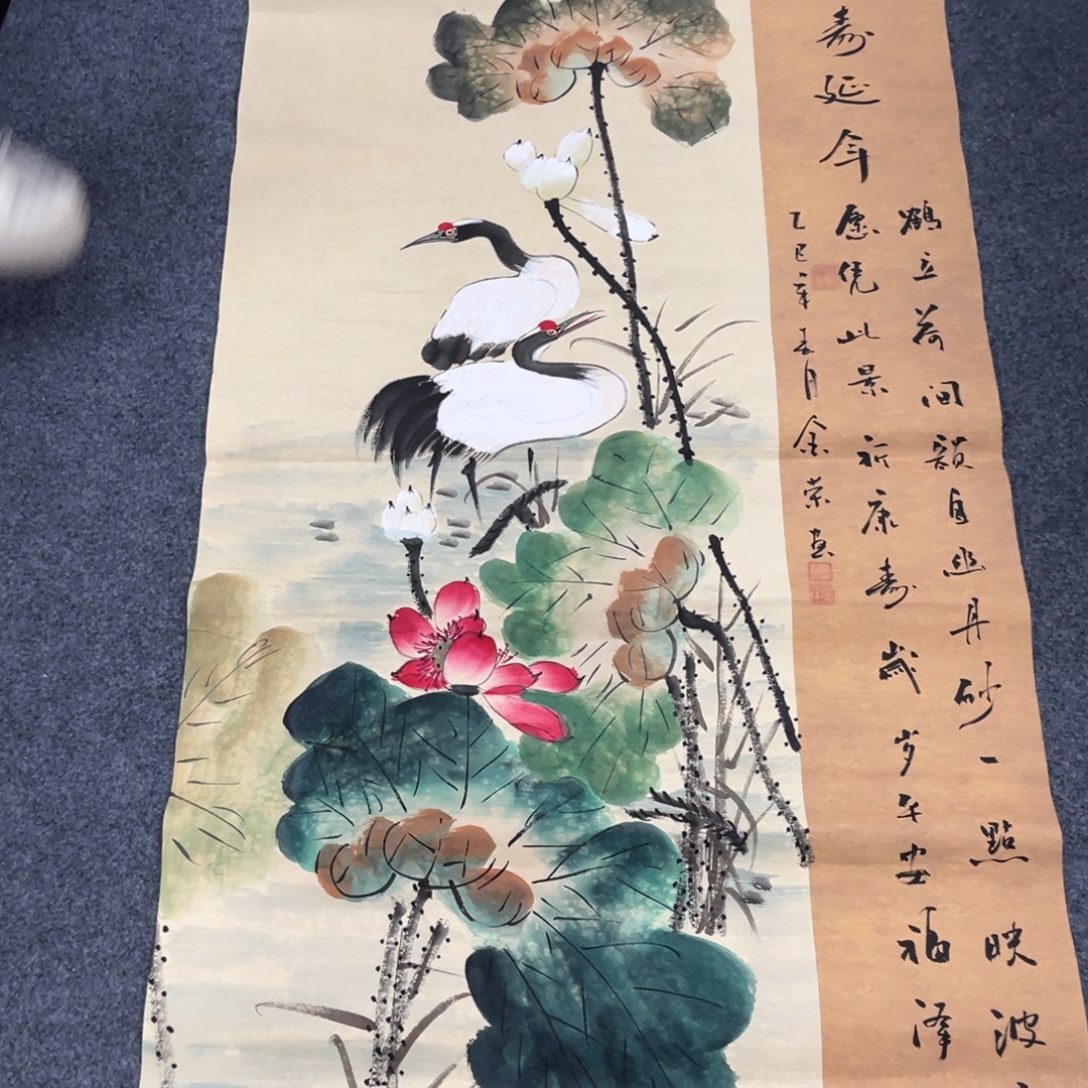 寿延年
鶴立荷间韻自幽丹砂一點映波
愿凭此景祈康寿歲岁平安福泽
乙巳年春月金荣画